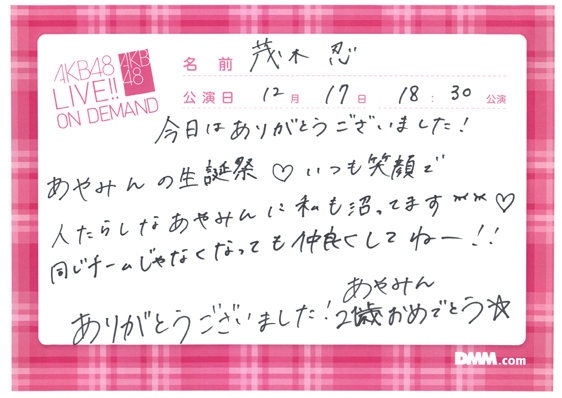 AKB48
LIVE!!
ON DEMAND
AKB
48
名前 茂木忍
公演日 12月 17日 18:30 公演
今日はありがとうございました!
あやみんの生誕祭♡いつも笑顔で
人たらしなあやみんに私も沼ってます♡
同じチームじゃなくなっても仲良くしてねー!!
あやみん
ありがとうございました!21歳おめでとう☆
DMM.com